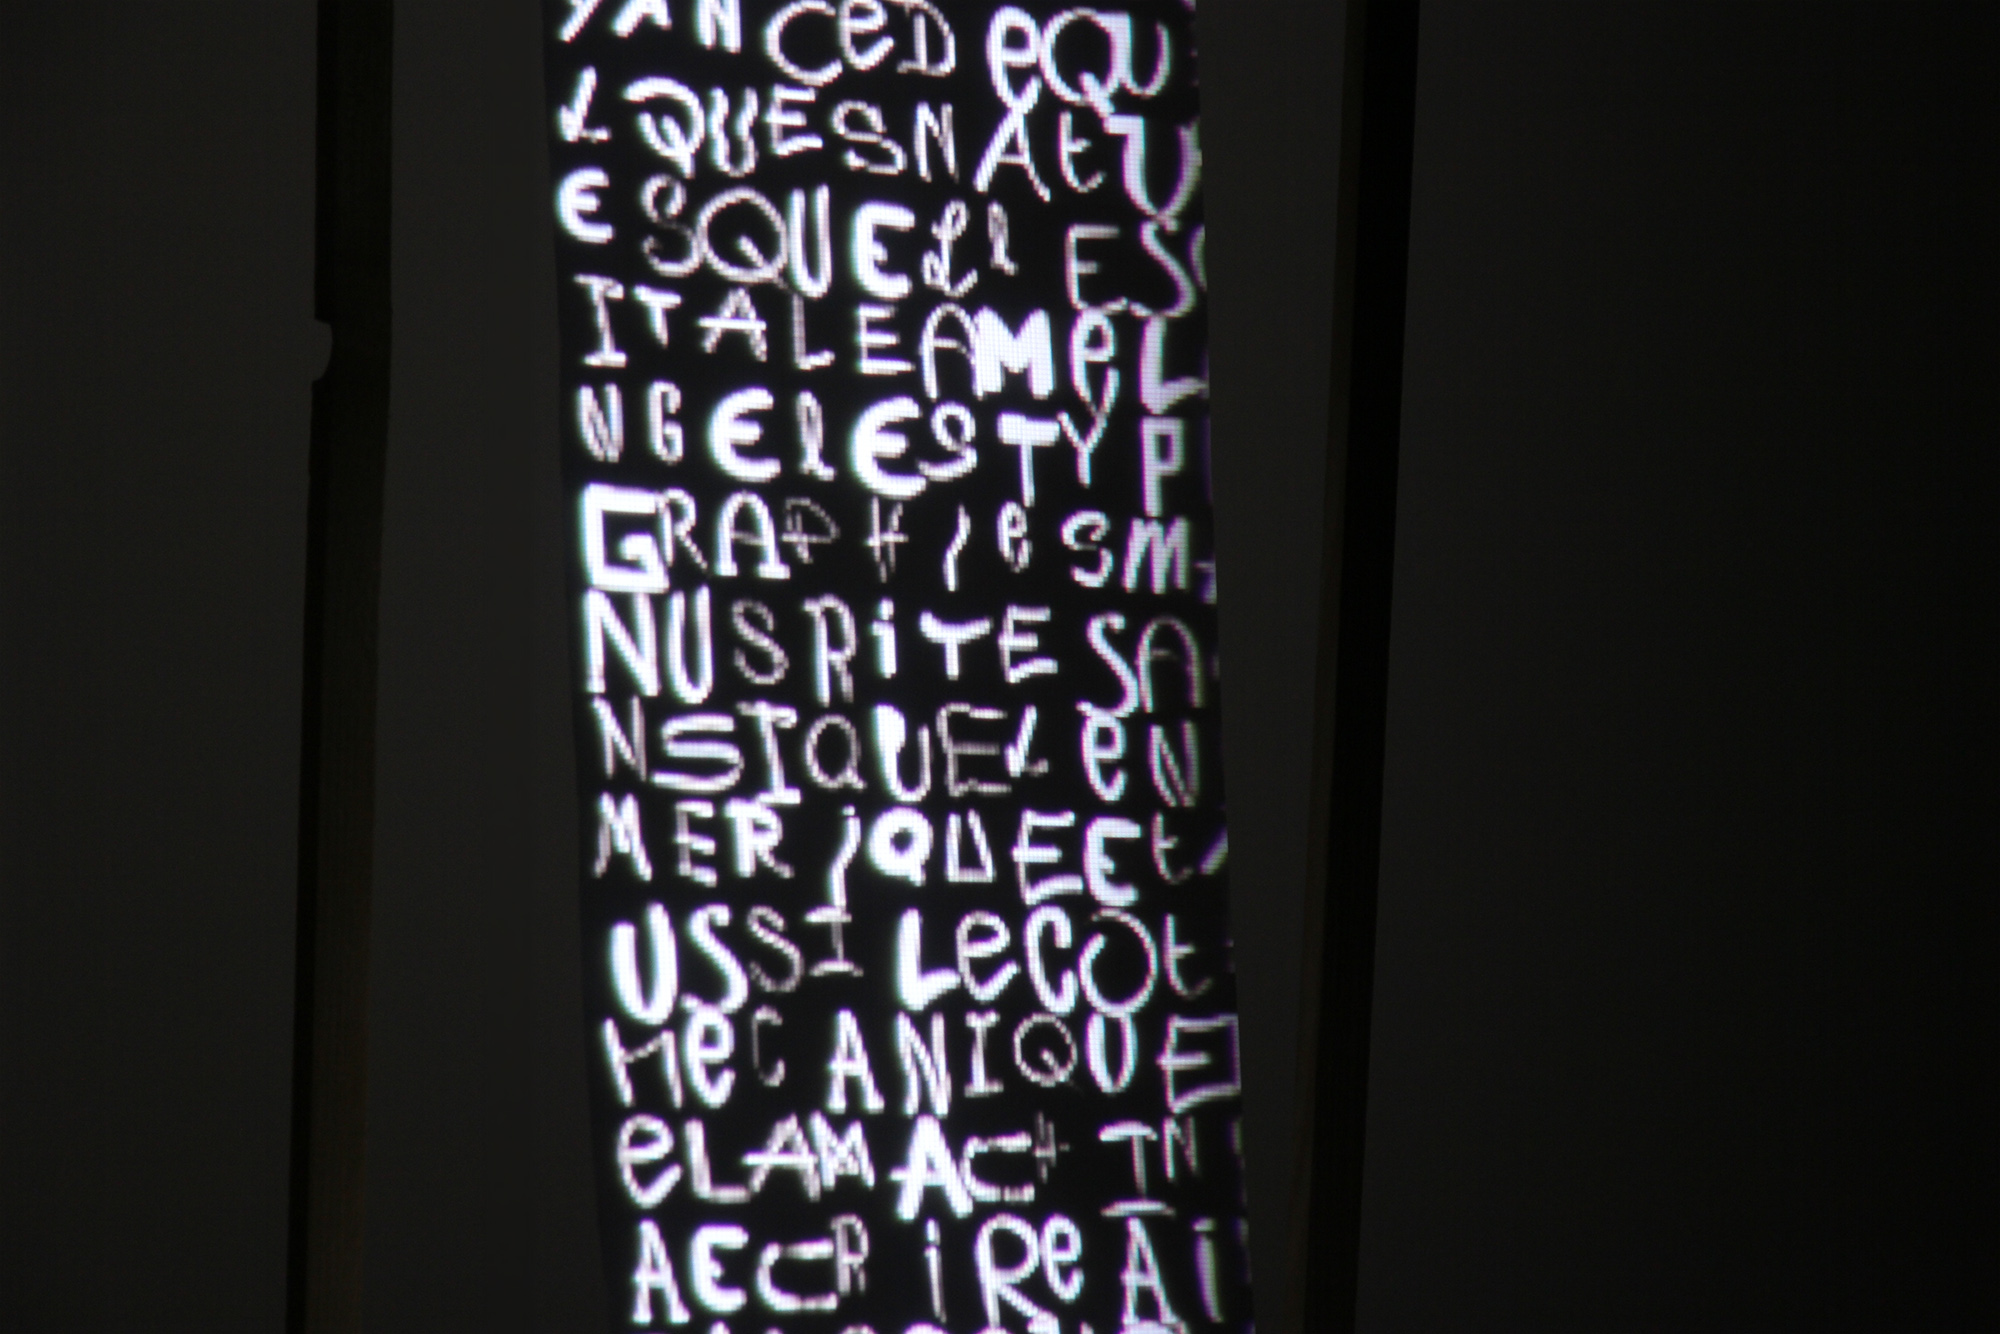 YANCED eQU
LQUESNAtU
ESQUELl ES
ITALEAMeL
NGElESTYP
GRAPHieSM
NUSRiTESA
NSIQUELeN
MERiQUEEt
USSILeCOt
MeCANIQUE
eLAMACHIN
AECRiReAi